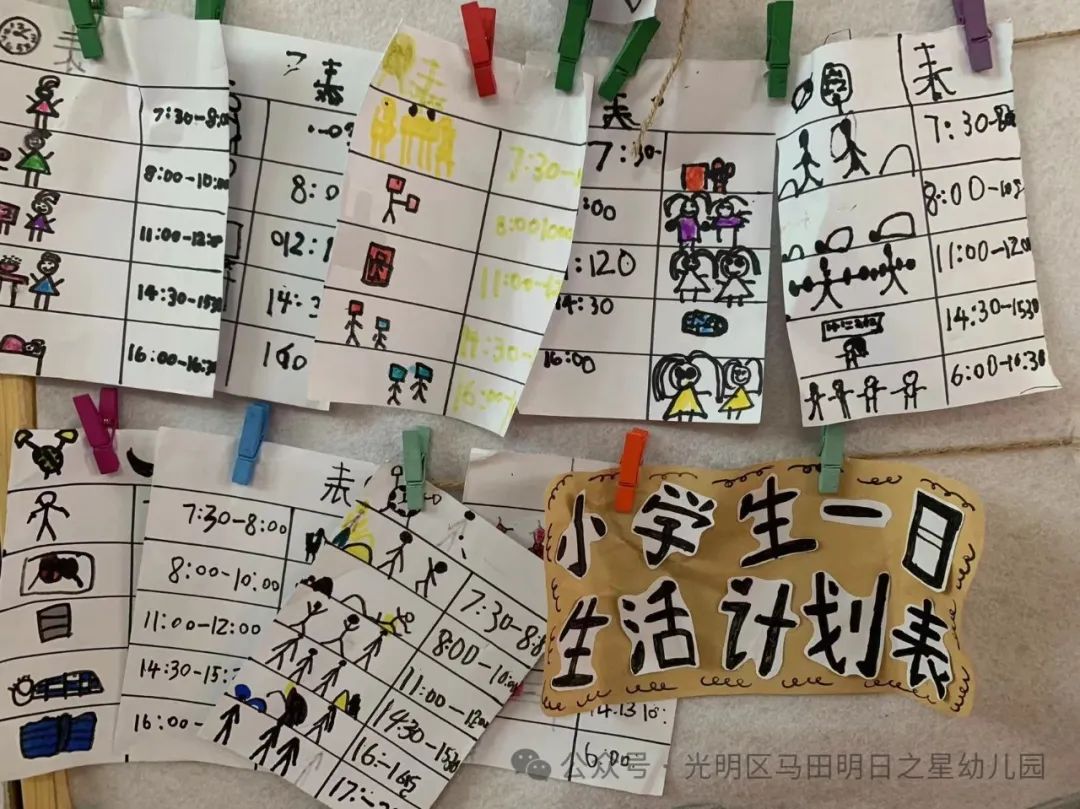 表
7:30-8:00
8:00-10:00
11:00-12:00
14:30-15:30
16:00-16:30
表
8:0
14:3
表
7:30-
11:00-1
14:30-
16:00-
表
7:30-
:00
:120
14:30
16:00
表
7:30-8
8:00-10
11:00-1200
14:30-1530
6:00-16:30
表
7:30-8:00
8:00-10:00
11:00-12:00
14:30-15:
16:00-
7:30-8:
8:00-10:
11:00-1200
14:30-1530
16:-
17:-
6:00
小学生一日
生活计划表
公众号·光明区马田明日之星幼儿园